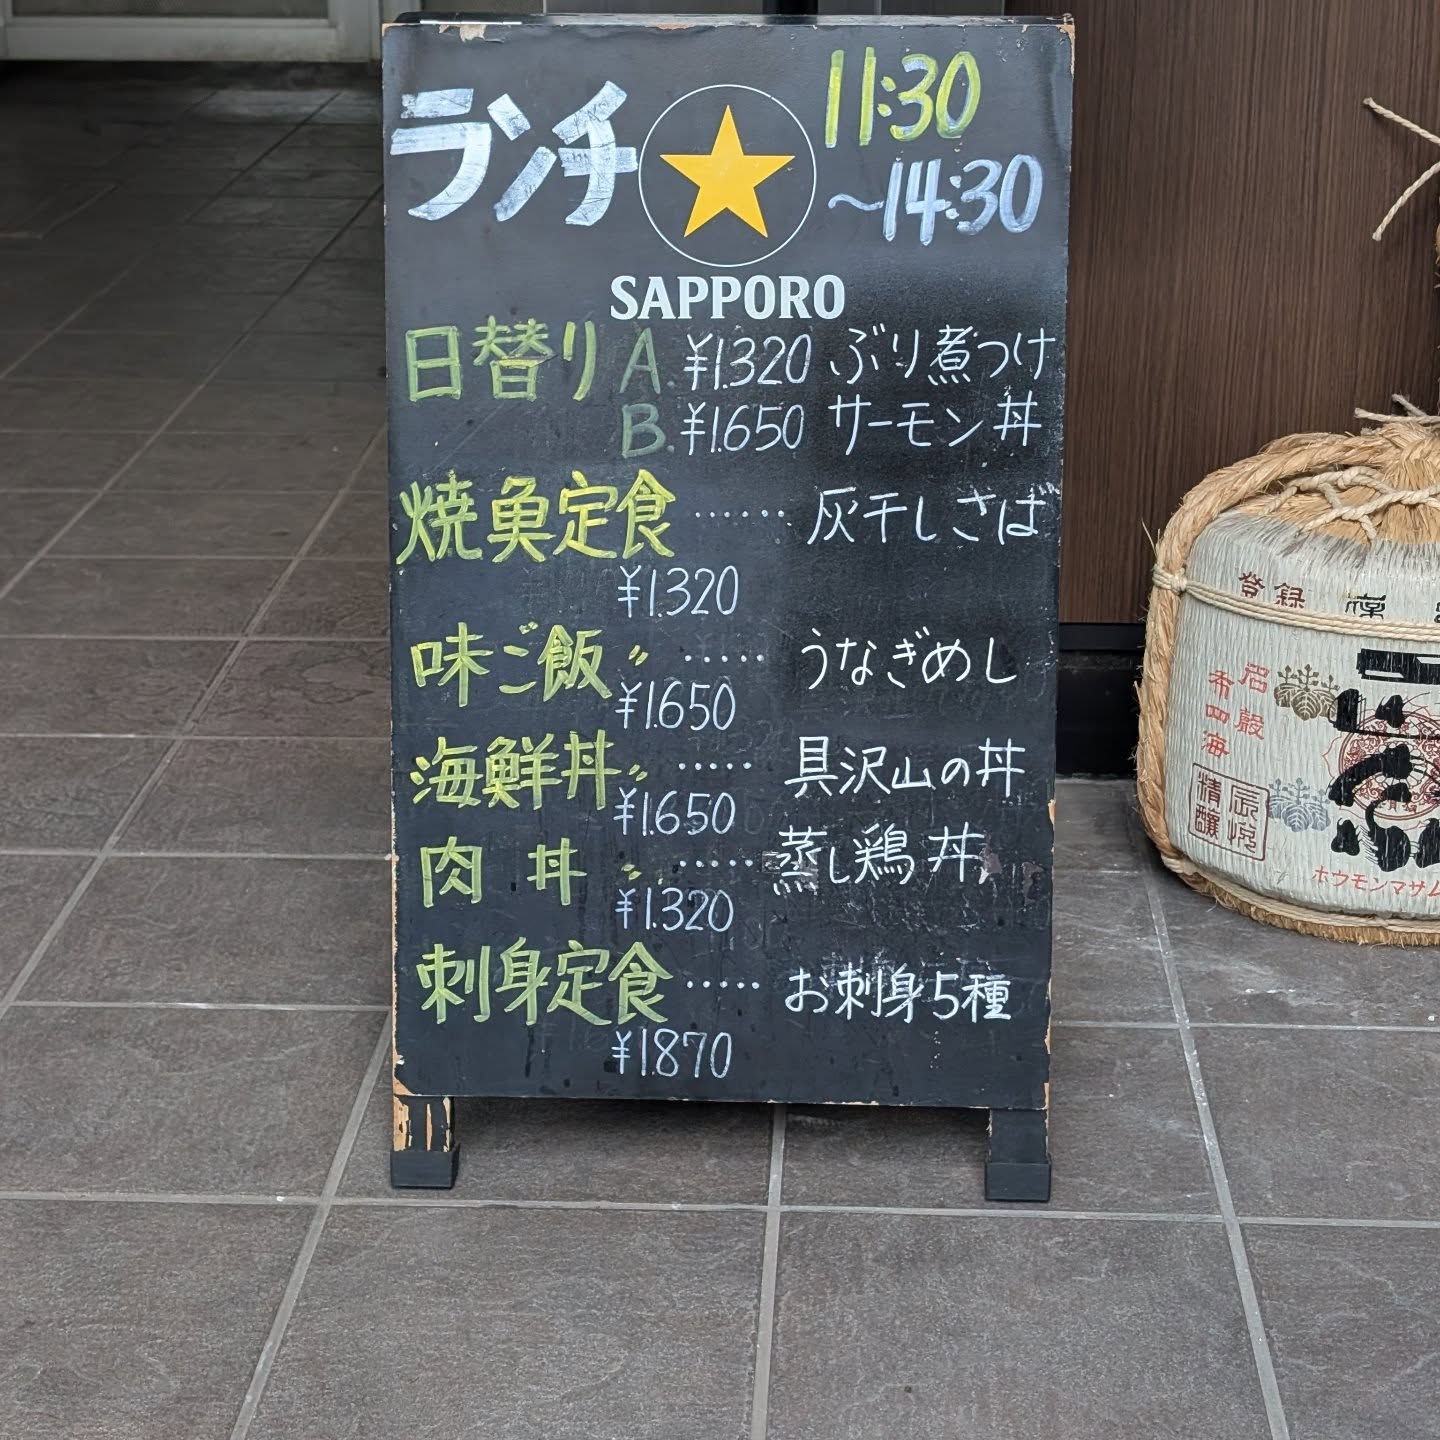 ランチ
11:30
～14:30
SAPPORO
日替り A. ¥1.320 ぶり煮つけ
B. ¥1.650 サーモン丼
焼魚定食 …… 灰干しさば
¥1.320
味ご飯〃 …… うなぎめし
¥1.650
海鮮丼〃 …… 具沢山の丼
¥1.650
肉丼〃 …… 蒸し鶏丼
¥1.320
刺身定食 …… お刺身5種
¥1.870
登録
ホウモンマサム